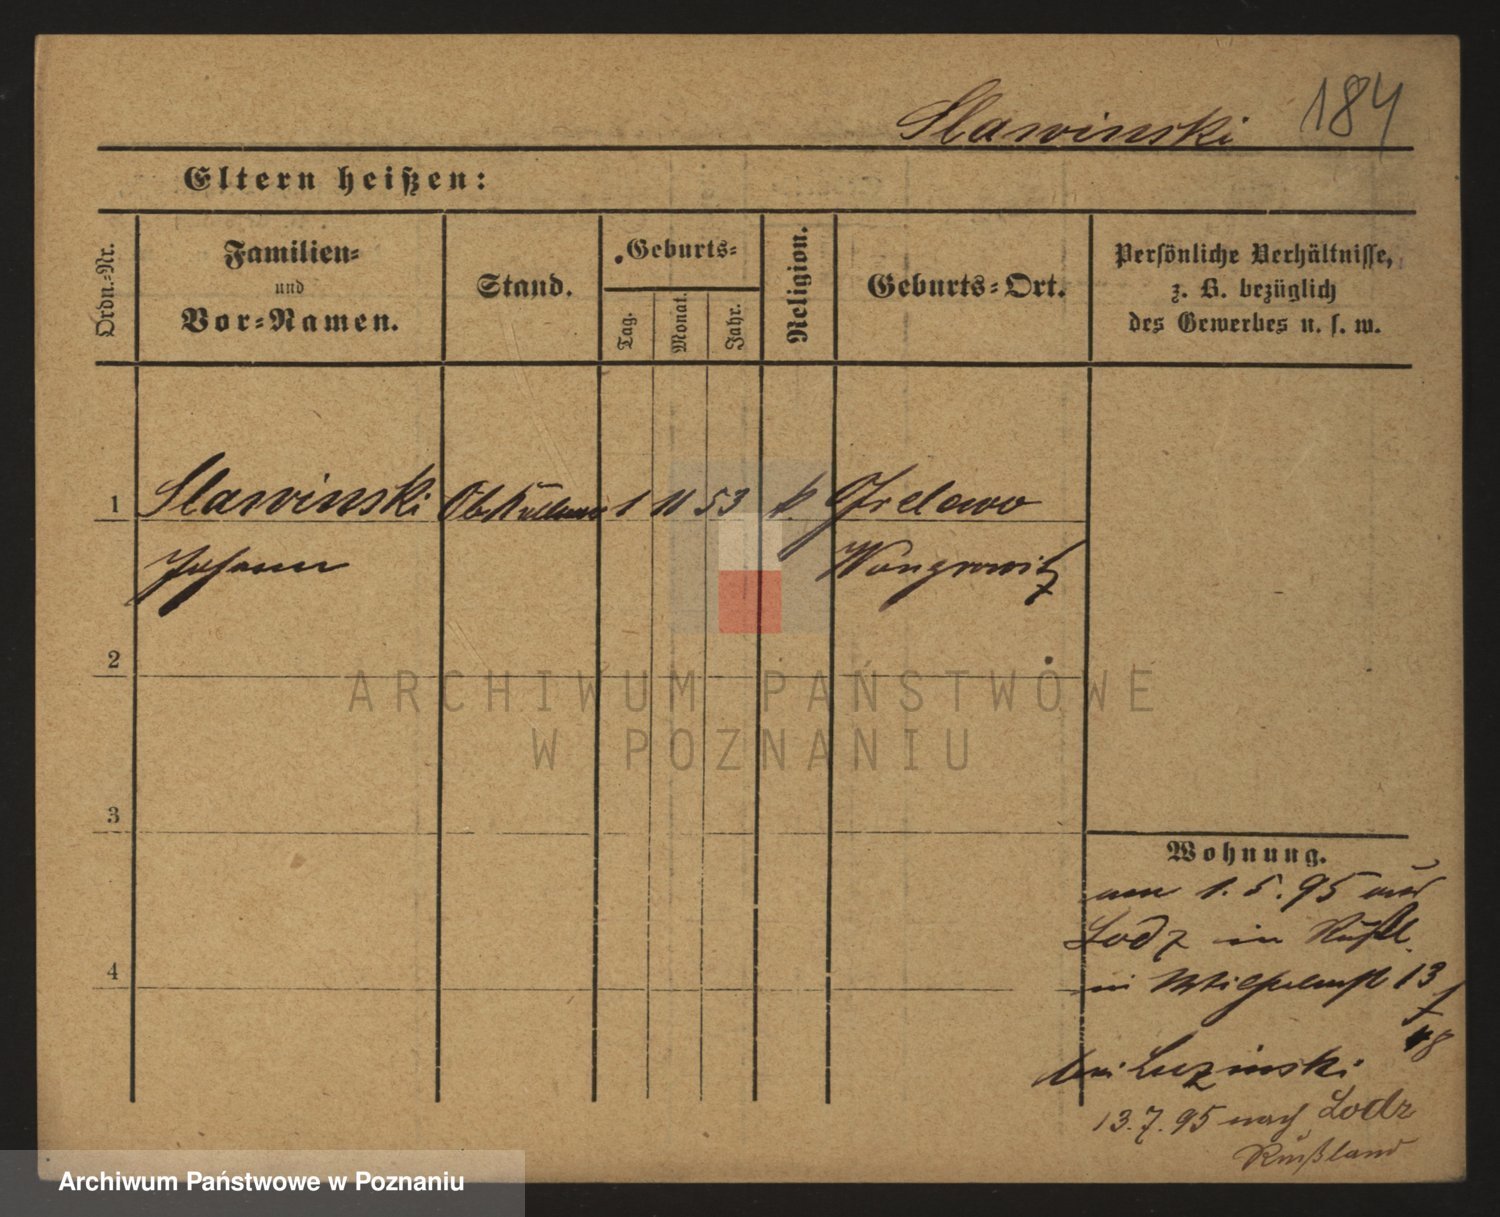 Slawinski 184
Eltern heißen:
Ordn.-Nr.
Familien-
und
Vor-Namen.
Stand.
Geburts-
Tag.
Monat.
Jahr.
Religion.
Geburts-Ort.
Persönliche Verhältnisse,
z. B. bezüglich
des Gewerbes u. s. w.
1 Slawinski 1 11 53 k.
Johann Wongrowitz
2
ARCHIWUM PAŃSTWOWE
W POZNANIU
3
Wohnung.
am 1.5.95 aus
Lodz in Rußl.
in Wilhelmst 13
4
bei Luzinski
13.7.95 nach Lodz
Rußland
Archiwum Państwowe w Poznaniu